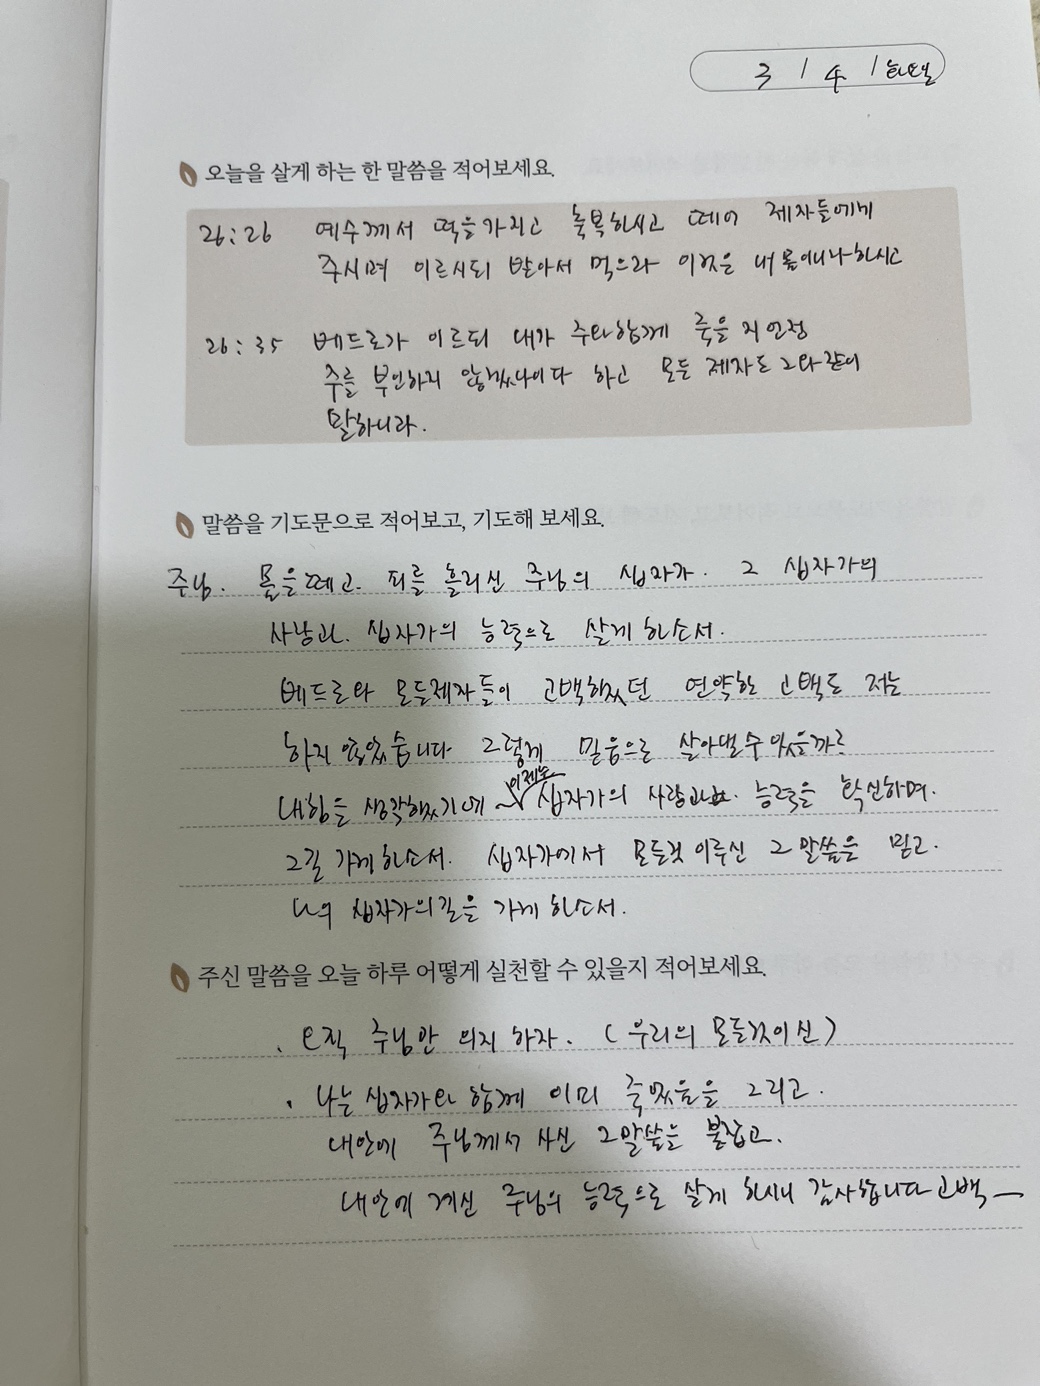 3 / 4 / 화요일
오늘을 살게 하는 한 말씀을 적어보세요.
26:26 예수께서 떡을 가지고 축복하시고 떼어 제자들에게
주시며 이르시되 받아서 먹으라 이것은 내 몸이니라 하시고
26:35 베드로가 이르되 내가 주와 함께 죽을지언정
주를 부인하지 않겠나이다 하고 모든 제자도 그와 같이
말하니라.
말씀을 기도문으로 적어보고, 기도해 보세요.
주님. 몸을 떼고. 피를 흘리신 주님의 십자가. 그 십자가의
사랑과. 십자가의 능력으로 살게 하소서.
베드로와 모든 제자들이 고백했던 연약한 고백도 저는
하지 않았습니다 그렇게 믿음으로 살아낼 수 있을까
를 생각했기에 이제는 십자가의 사랑과 능력을 확신하며.
그길 가게 하소서. 십자가에서 모든것 이루신 그 말씀을 믿고.
나의 십자가의 길을 가게 하소서.
주신 말씀을 오늘 하루 어떻게 실천할 수 있을지 적어보세요.
. 오직 주님만 의지 하자. (우리의 모든것이신)
. 나는 십자가와 함께 이미 죽었음을 그리고.
내안에 주님께서 사신 그 말씀을 붙잡고.
내안에 계신 주님의 능력으로 살게 하시니 감사합니다 고백